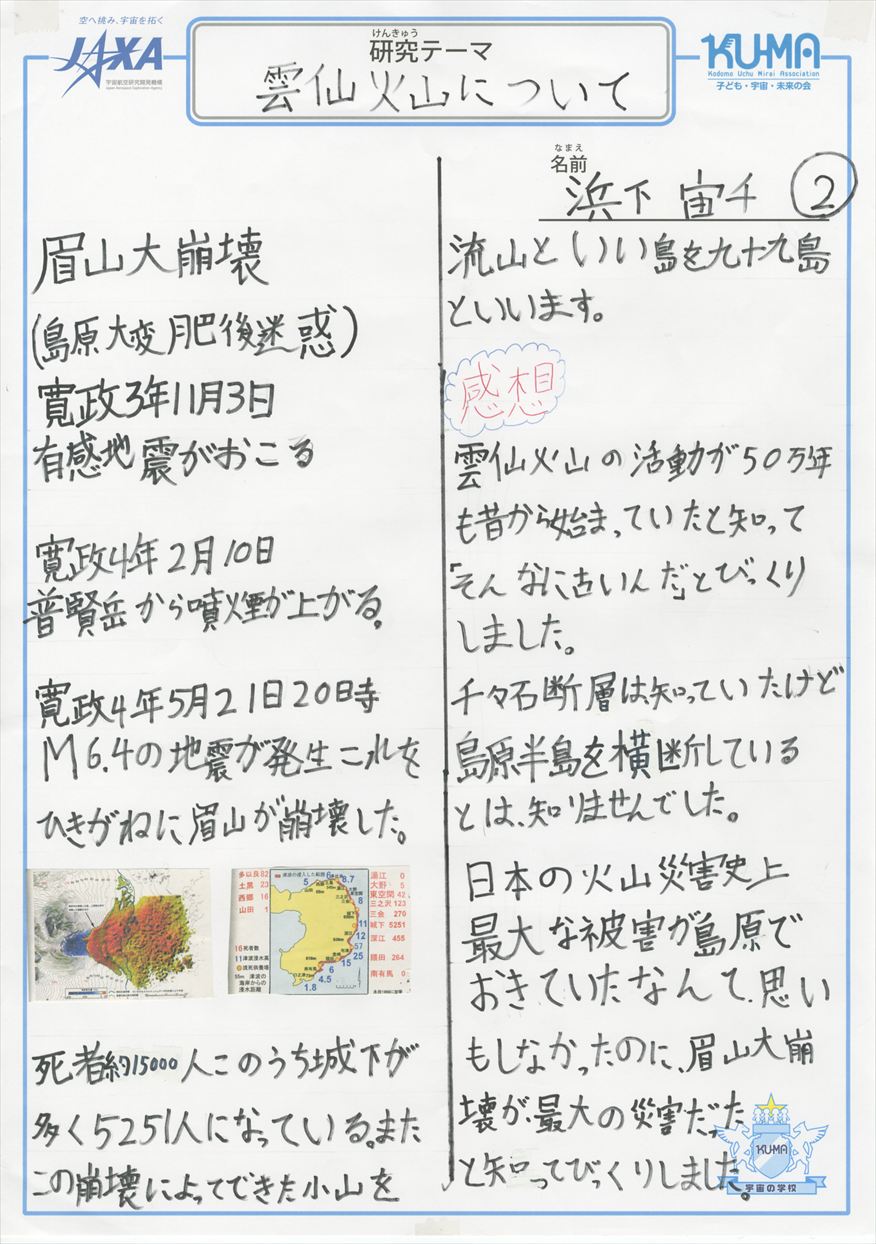 空へ挑み、宇宙を拓く
JAXA
宇宙航空研究開発機構
Japan Aerospace Exploration Agency
けんきゅう
研究テーマ
雲仙火山について
KU-MA
Kodomo Uchu Mirai Association
子ども・宇宙・未来の会
なまえ
名前
浜下 宙千 ②
眉山大崩壊
(島原大変肥後迷惑)
寛政3年11月3日
有感地震がおこる
寛政4年2月10日
普賢岳から噴煙が上がる。
寛政4年5月21日20日時
M6.4の地震が発生これを
ひきがねに眉山が崩壊した。
多以良82
土黒 23
西郷 16
山田 1
16死者数
11津波浸水高
津波の
海岸からの
浸水距離
津波の浸入した範囲
湯江 0
大野 5
東空閑 42
三之沢 123
三会 270
城下 5251
深江 455
隈田 264
南有馬 0
死者約15000人このうち城下が
多く5251人になっている。また
この崩壊によってできた小山を
流山といい島を九十九島
といいます。
感想
雲仙火山の活動が50万年
も昔から始まっていたと知って
「そんなに古いんだ」とびっくり
しました。
千々石断層は知っていたけど
島原半島を横断している
とは、知りませんでした。
日本の火山災害史上
最大な被害が島原で
おきていたなんて、思い
もしなかったのに、眉山大崩
壊が、最大の災害だった
と知ってびっくりしました。
KU-MA
宇宙の学校